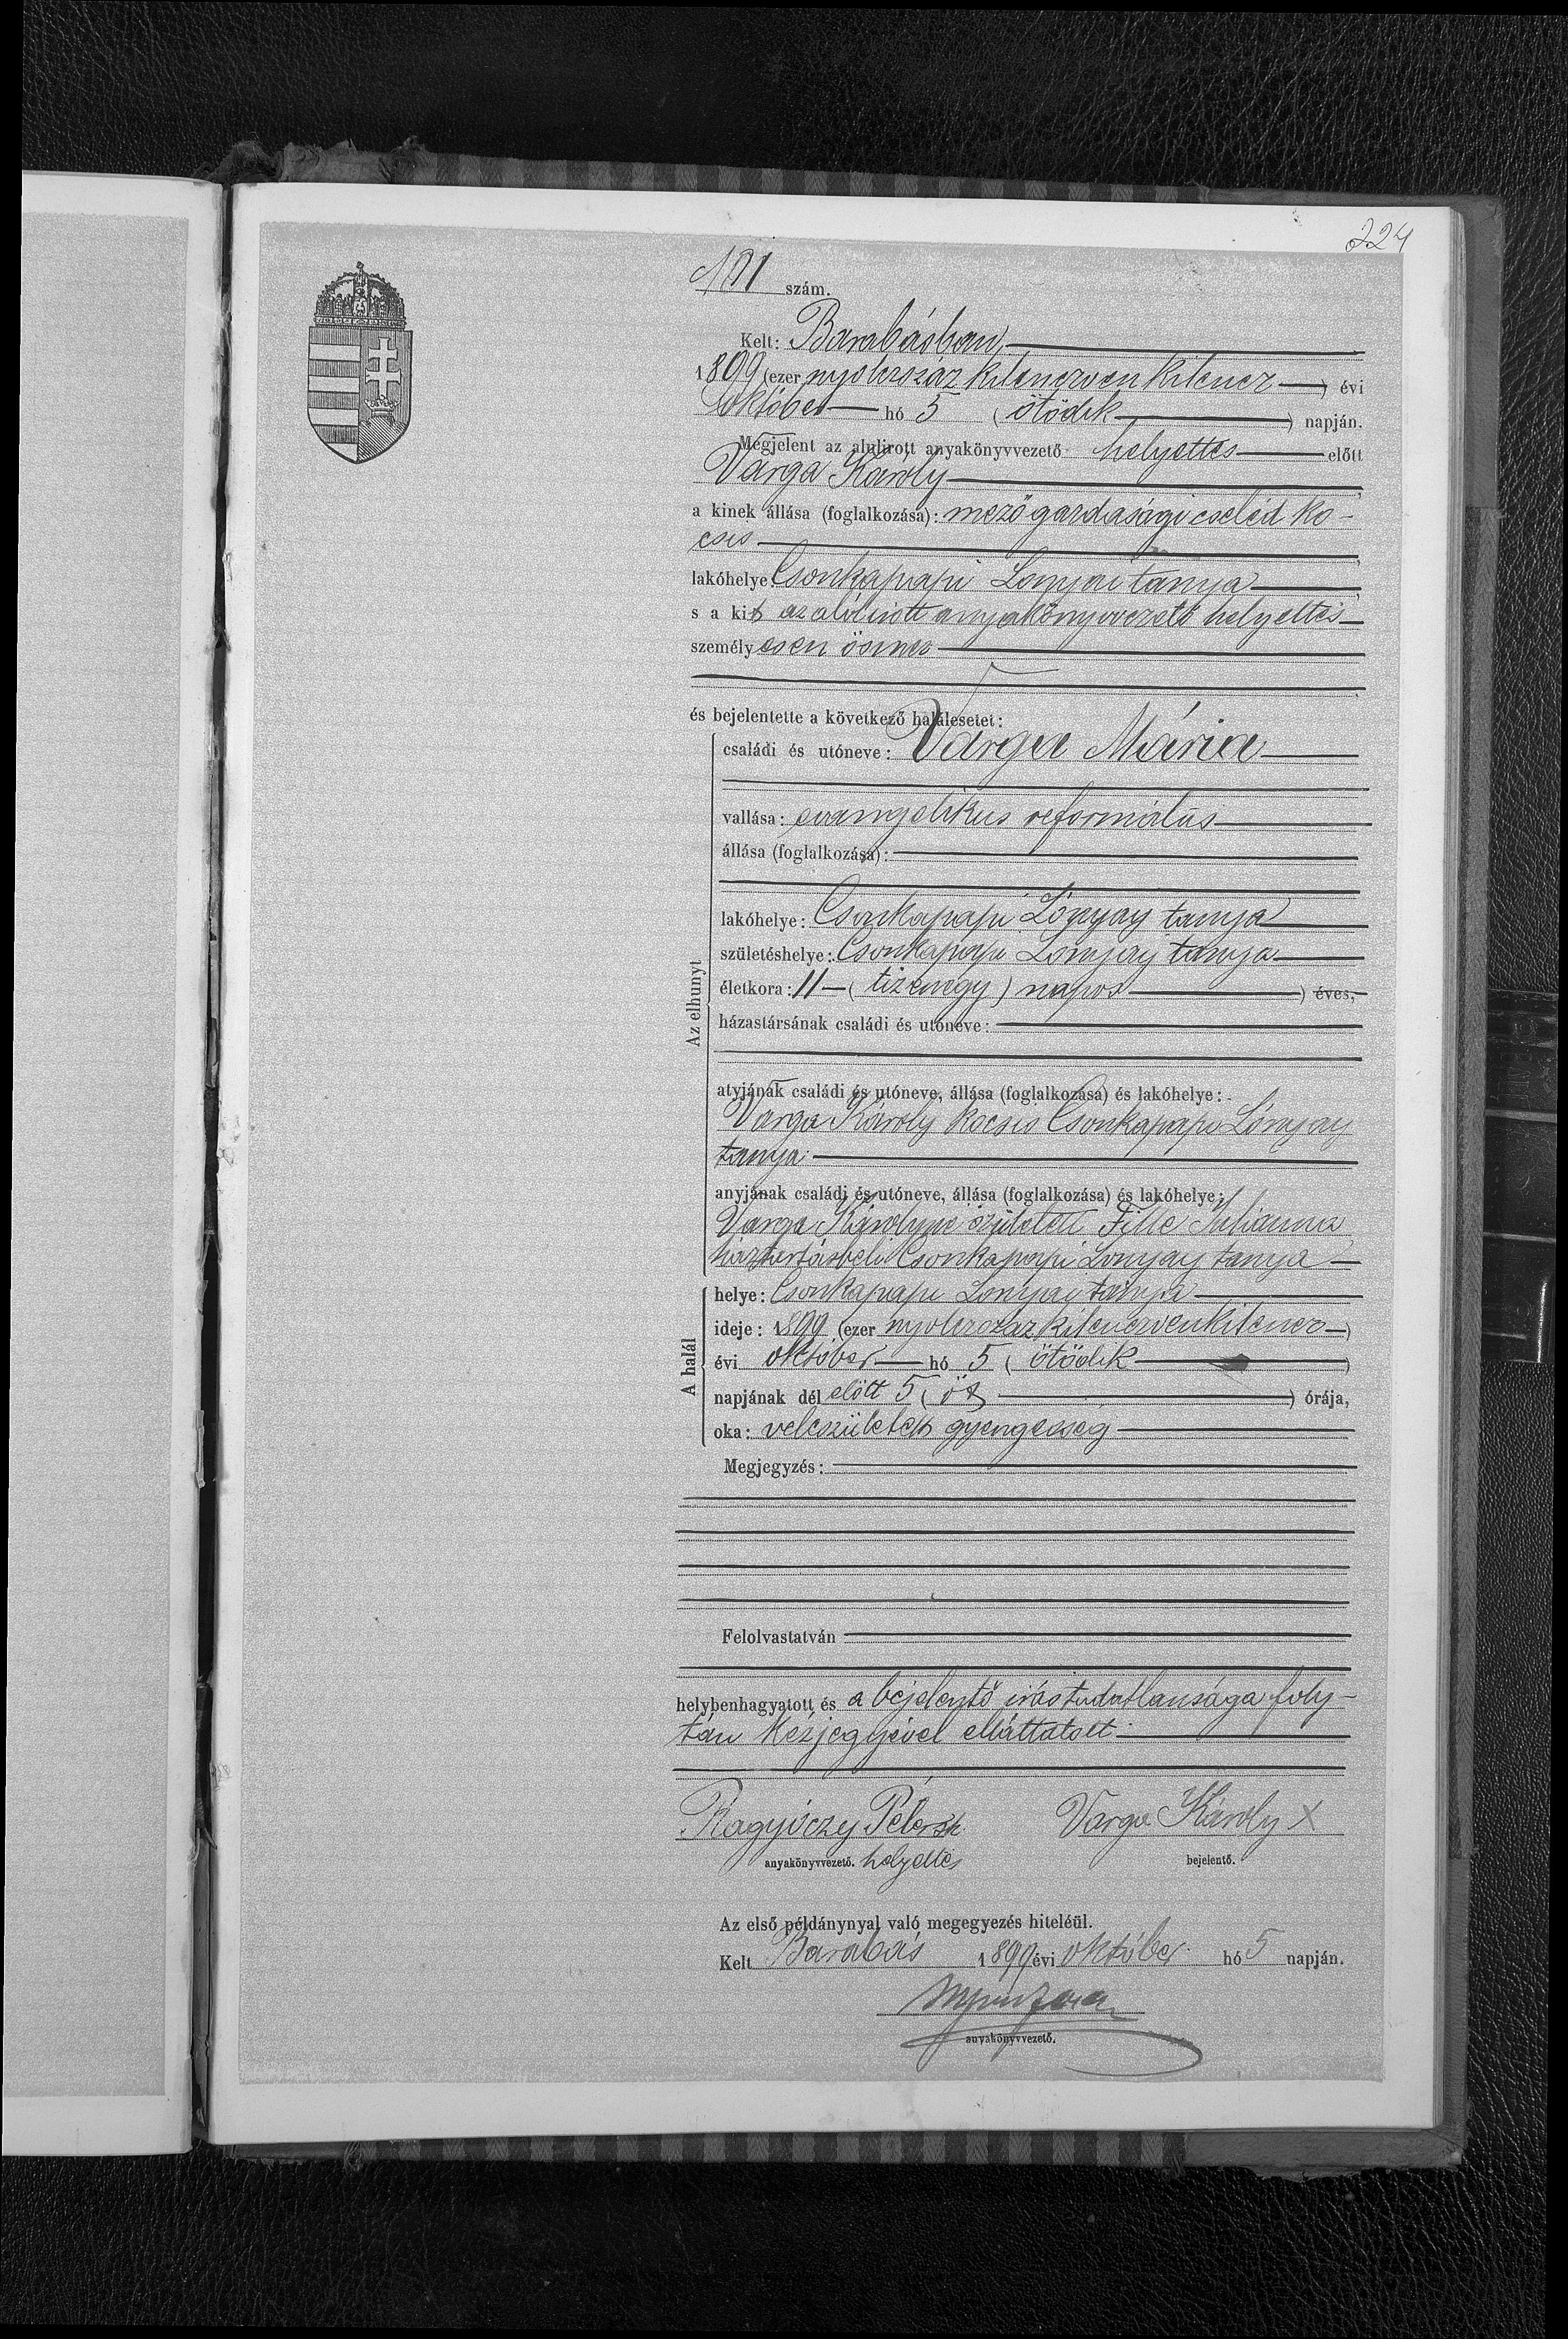 224
101 szám.
Kelt: Barabásban
1899 (ezer nyolczszáz kilenczven kilencz ) évi
október hó 5 (ötödik ) napján.
Megjelent az alulirott anyakönyvvezető helyettes előtt
Varga Károly
a kinek állása (foglalkozása): mezőgazdasági cseléd ko-
csis
lakóhelye: Csonkapapi Lónyai tanya
s a kit az alólirott anyakönyvvezető helyettes
személyesen ösmer
és bejelentette a következő halálesetet:
családi és utóneve: Varga Mária
vallása: evangelikus református
állása (foglalkozása):
lakóhelye: Csonkapapi Lónyay tanya
születéshelye: Csonkapapi Lónyay tanya
életkora: 11 – (tizenegy) napos ) éves,
házastársának családi és utóneve:
atyjának családi és utóneve, állása (foglalkozása) és lakóhelye:
Varga Károly kocsis Csonkapapi Lónyay
tanya
anyjának családi és utóneve, állása (foglalkozása) és lakóhelye:
Varga Károlyné született Julianna
háztartásbeli Csonkapapi Lonyay tanya
Az elhunyt
helye: Csonkapapi Lonyay tanya
ideje: 1899 (ezer nyolczszáz kilenczvenkilencz )
évi október hó 5 (ötödik )
napjának dél előtt 5 (öt ) órája,
oka: veleszületett gyengeség
A halál
Megjegyzés:
Felolvastatván
helybenhagyatott és a bejelentő irástudatlansága foly-
tán kézjegyével elláttatott
Varga Károly X
anyakönyvvezető. helyettes
bejelentő.
Az első példánynyal való megegyezés hiteléül.
Kelt Barabás 1899 évi október hó 5 napján.
anyakönyvvezető.